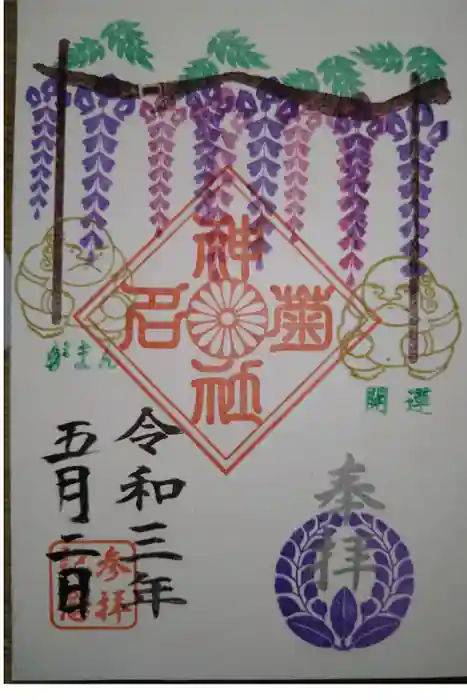 菊名
神社
がまん
開運
奉拝
令和三年
五月二日
参拝